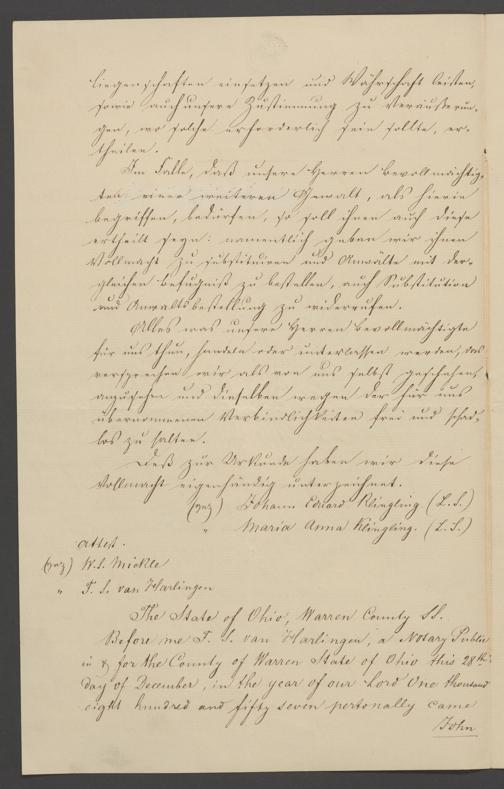 liegenschaften einsetzen und Währschaft leisten,
sowie auch unsere Zustimmung zu Veräußerun-
gen, wo solche erforderlich sein sollte, er-
theilen.
Im Falle, daß unsere Herren Bevollmächtig-
ten einer weiteren Gewalt, als hierin
begriffen, bedürfen, so soll ihnen auch diese
ertheilt seyn: namentlich geben wir ihnen
Vollmacht zu substituiren und Anwälte mit der-
gleichen Befugniß zu bestellen, auch Substitution
und Anwaltsbestellung zu widerrufen.
Alles was unsere Herren Bevollmächtigte
für uns thun, handeln oder unterlassen werden, das
versprechen wir als von uns selbst geschehen
anzusehen und dieselben wegen der für uns
übernommenen Verbindlichkeiten frei und schad-
los zu halten.
Deß zur Urkunde haben wir diese
Vollmacht eigenhändig unterzeichnet.
(gez) Johann Eduard Klingling (L.S.)
" Maria Anna Klingling. (L.S.)
Attest.
(gez) W. S. Mickle
" T. S. van Harlingen
The State of Ohio, Warren County SS.
Before me T. S. van Harlingen, a Notary Public
in & for the County of Warren State of Ohio this 28th
day of December, in the year of our Lord One thousand
eight hundred and fifty seven personally came
John